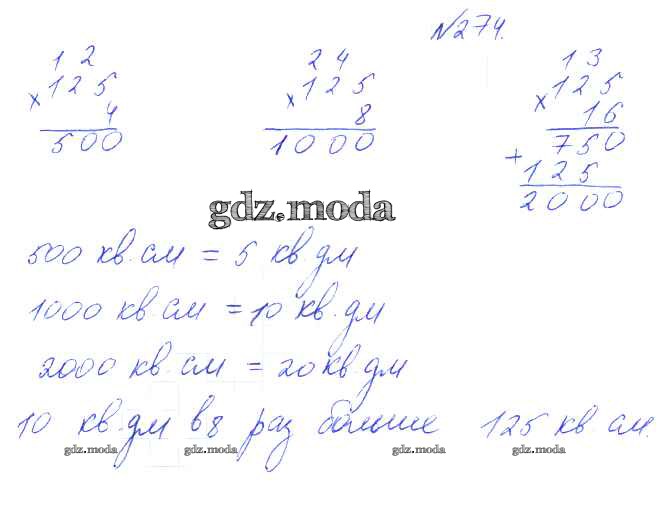 №274.
12 24 13
×125 ×125 ×125
4 8 16
500 1000 750
+125
2000
gdz.moda
500 кв.см = 5 кв.дм
1000 кв.см = 10 кв.дм
2000 кв.см = 20 кв.дм
10 кв.дм в 8 раз больше 125 кв см.
gdz.moda gdz.moda gdz.moda gdz.moda